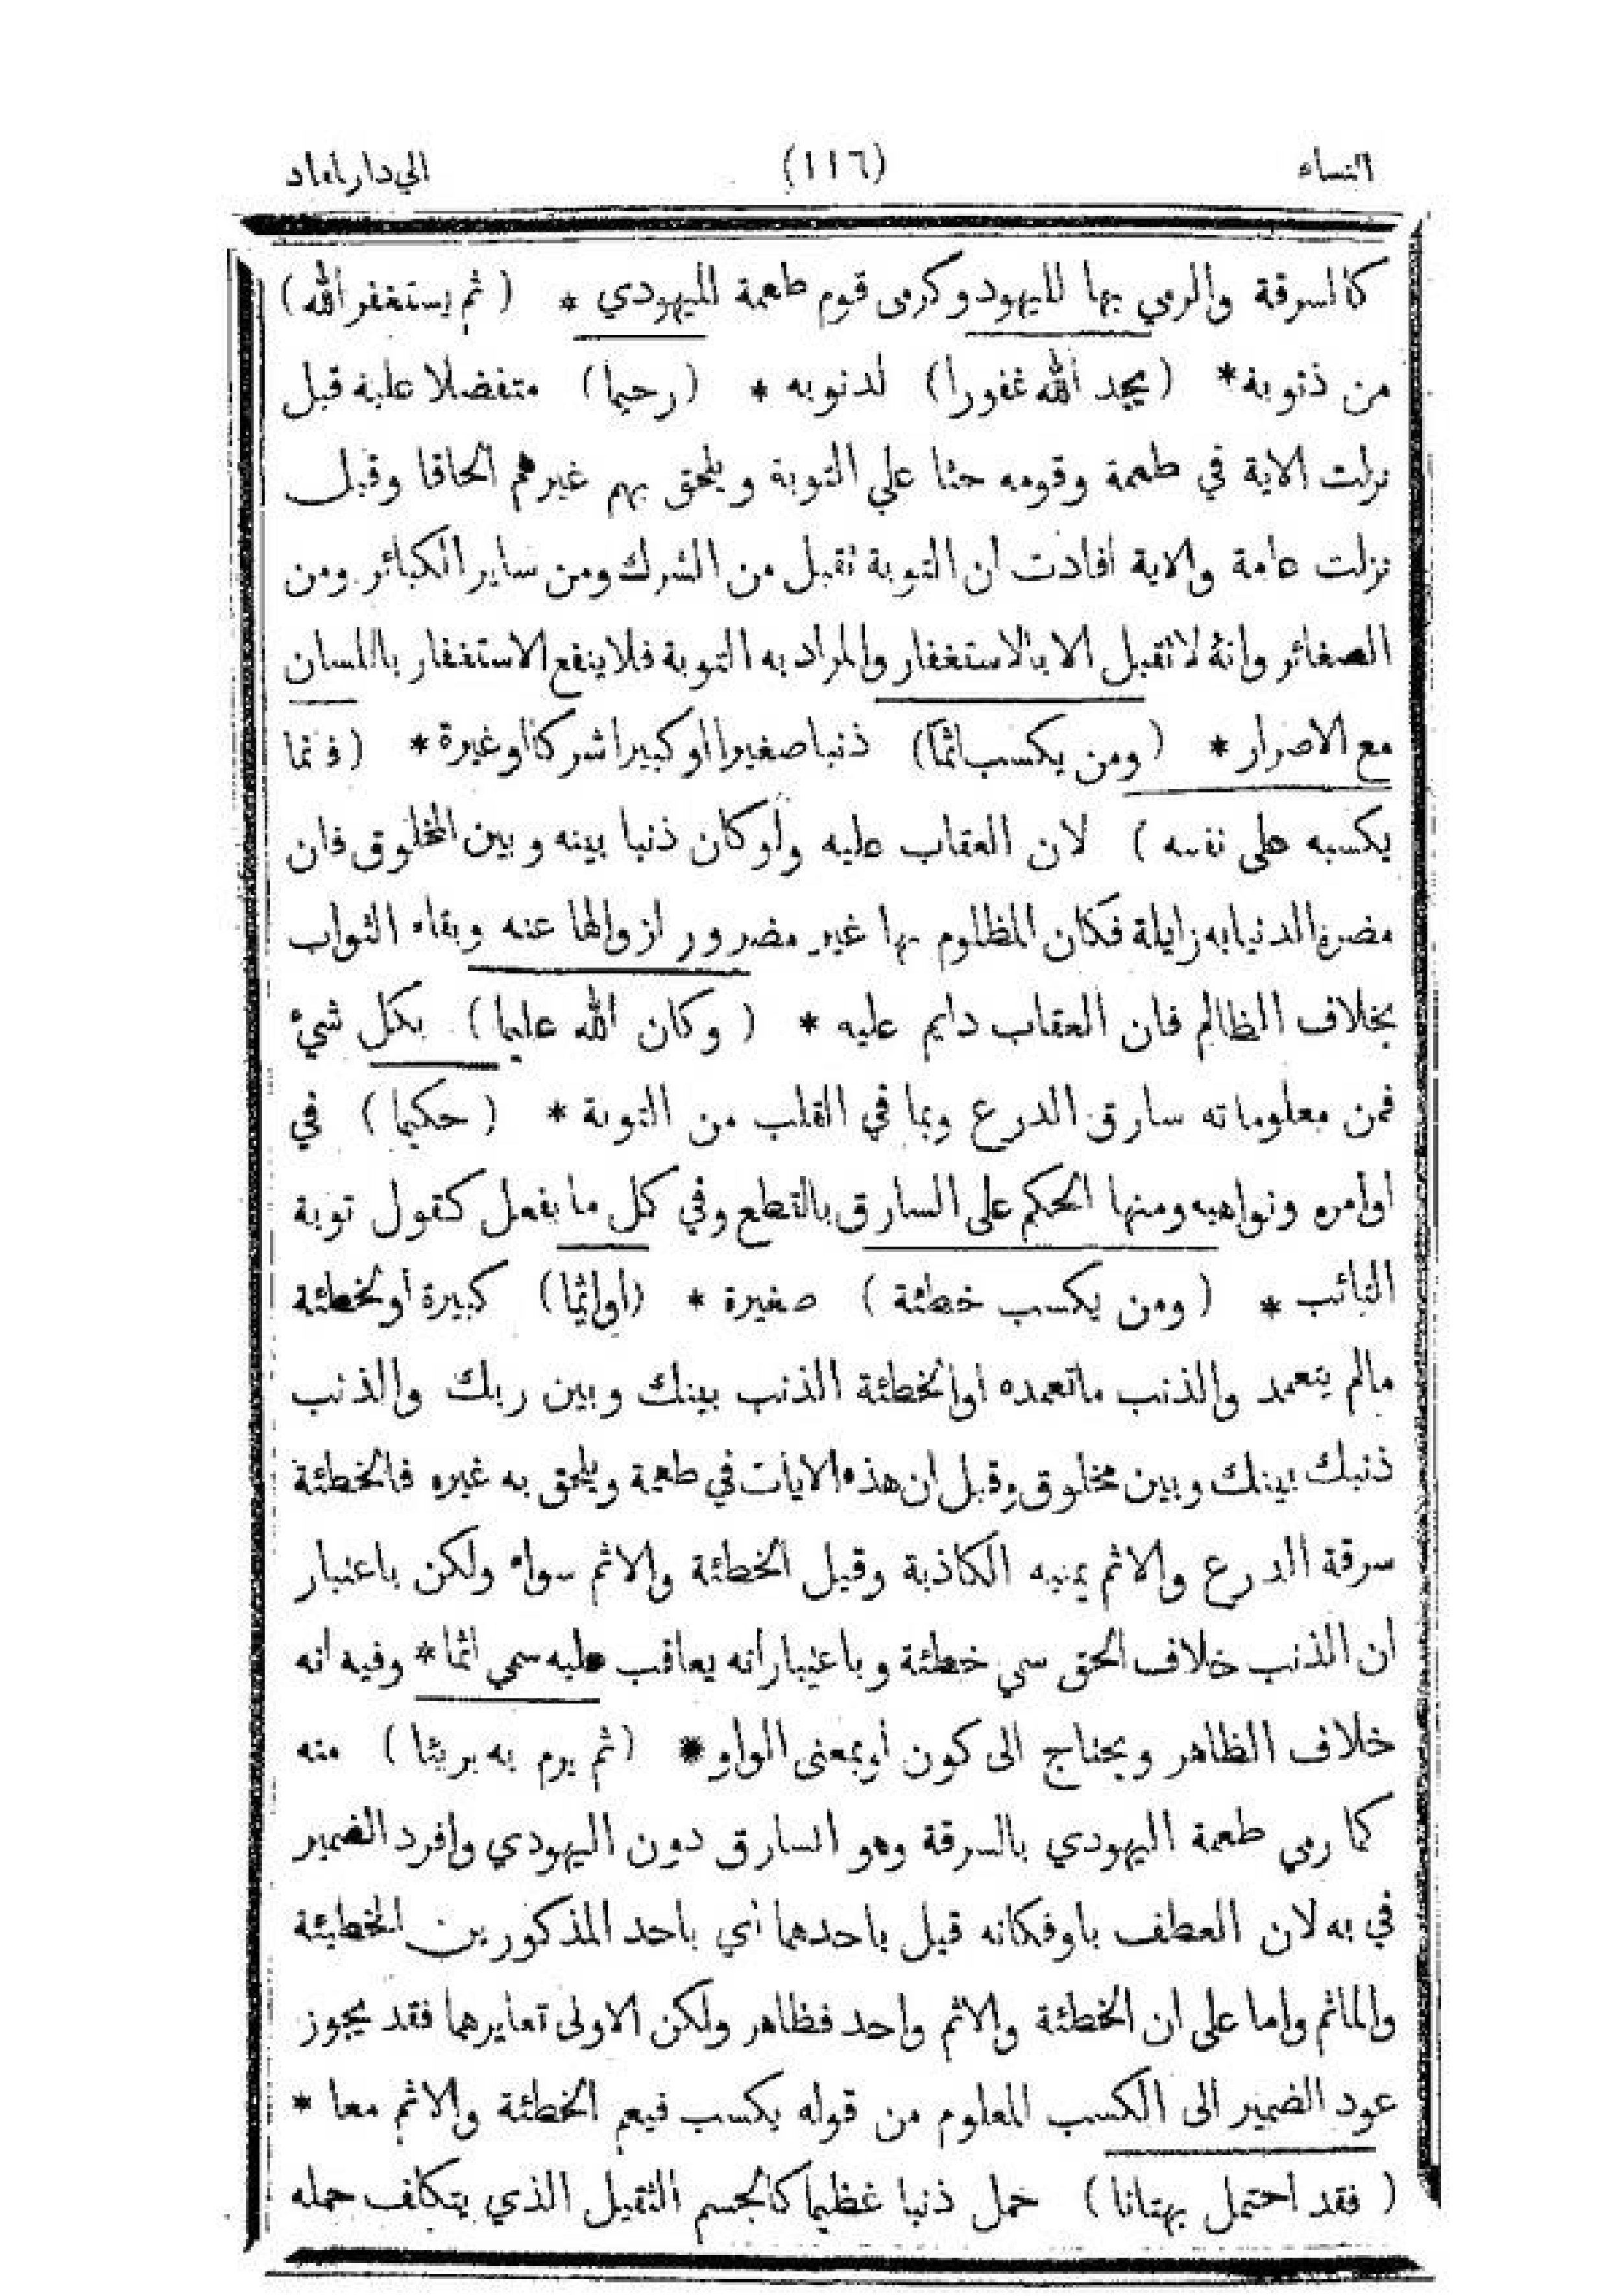 النساء (١١٦) الي دار المعاد
كالسرقة والرمي بها لليهود وكرمى قوم طعمة اليهودي * ( ثم يستغفر الله )
من ذنوبة * ( يجد الله غفورا ) لذنوبه * ( رحيما ) متفضلا علية قيل
نزلت الاية في طعمة وقومه حثا علي التوبة ويلحق بهم غيرهم الحاقا وقيل
نزلت عامة والاية افادت ان التوبة تقبل من الشرك ومن ساير الكبائر ومن
الصغائر وانة لا تقبل الا بالاستغفار والمراد به التوبة فلا ينفع الاستغفار باللسان
مع الاصرار * ( ومن يكسب اثما ) ذنبا صغيرا او كبيرا شركا او غيرة * ( فانما
يكسبه على نفسه ) لان العقاب عليه ولو كان ذنبا بينه وبين المخلوق فان
مضرة الدنيا به زايلة فكان المظلوم بها غير مضرور لزوالها عنه وبقاء الثواب
بخلاف الظالم فان العقاب دايم عليه * ( وكان الله عليما ) بكل شيء
فمن معلوماته سارق الدرع وبما في القلب من التوبة * ( حكيما ) في
اوامره ونواهيه ومنها الحكم على السارق بالقطع وفي كل ما يفعل كقبول توبة
التائب * ( ومن يكسب خطئة ) صغيرة * ( اواثما ) كبيرة أوالخطئة
مالم يتعمد والذنب ماتعمده اوالخطئة الذنب بينك وبين ربك والذنب
ذنبك بينك وبين مخلوق وقيل ان هذه الايات في طعمة ويلحق به غيره فالخطئة
سرقة الدرع والاثم يمينه الكاذبة وقيل الخطئة والاثم سواء ولكن باعتبار
ان الذنب خلاف الحق سمي خطئة وباعتبار انه يعاقب عليه سمي اثما * وفيه انه
خلاف الظاهر ويحتاج الى كون او بمعنى الواو * ( ثم يرم به بريئا ) منه
كما رمي طعمة اليهودي بالسرقة وهو السارق دون اليهودي وافرد الضمير
في به لان العطف باو فكانه قيل باحدهما أي باحد المذكورين الخطيئة
والماثم واما على ان الخطئة والاثم واحد فظاهر ولكن الاولى تغايرهما فقد يجوز
عود الضمير الى الكسب المعلوم من قوله يكسب فيعم الخطئة والاثم معا *
( فقد احتمل بهتانا ) حمل ذنبا عظيما كالجسم الثقيل الذي يتكلف حمله